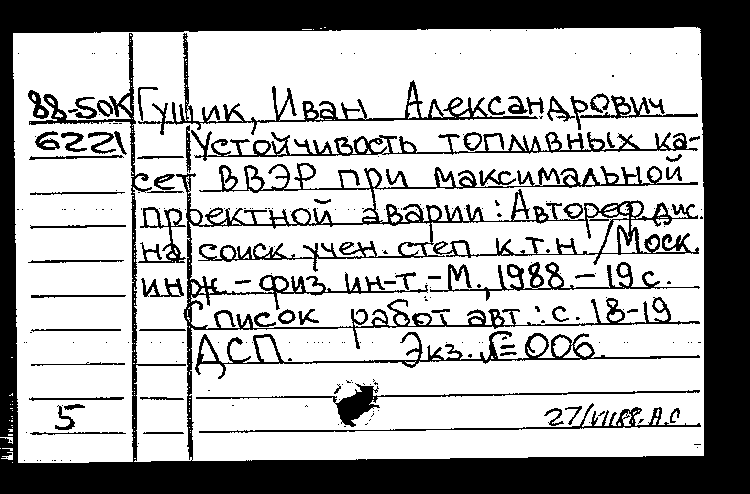 88-50К Гущик, Иван Александрович
6221 Устойчивость топливных ка-
сет ВВЭР при максимальной
проектной аварии: Автореф. дис.
на соиск. учен. степ к.т.н. / Моск.
инж.- физ. ин-т,-М., 1988.- 19 с.
Список работ авт.: с. 18-19
ДСП. Экз. № 006.
5 27/VII88. А.С